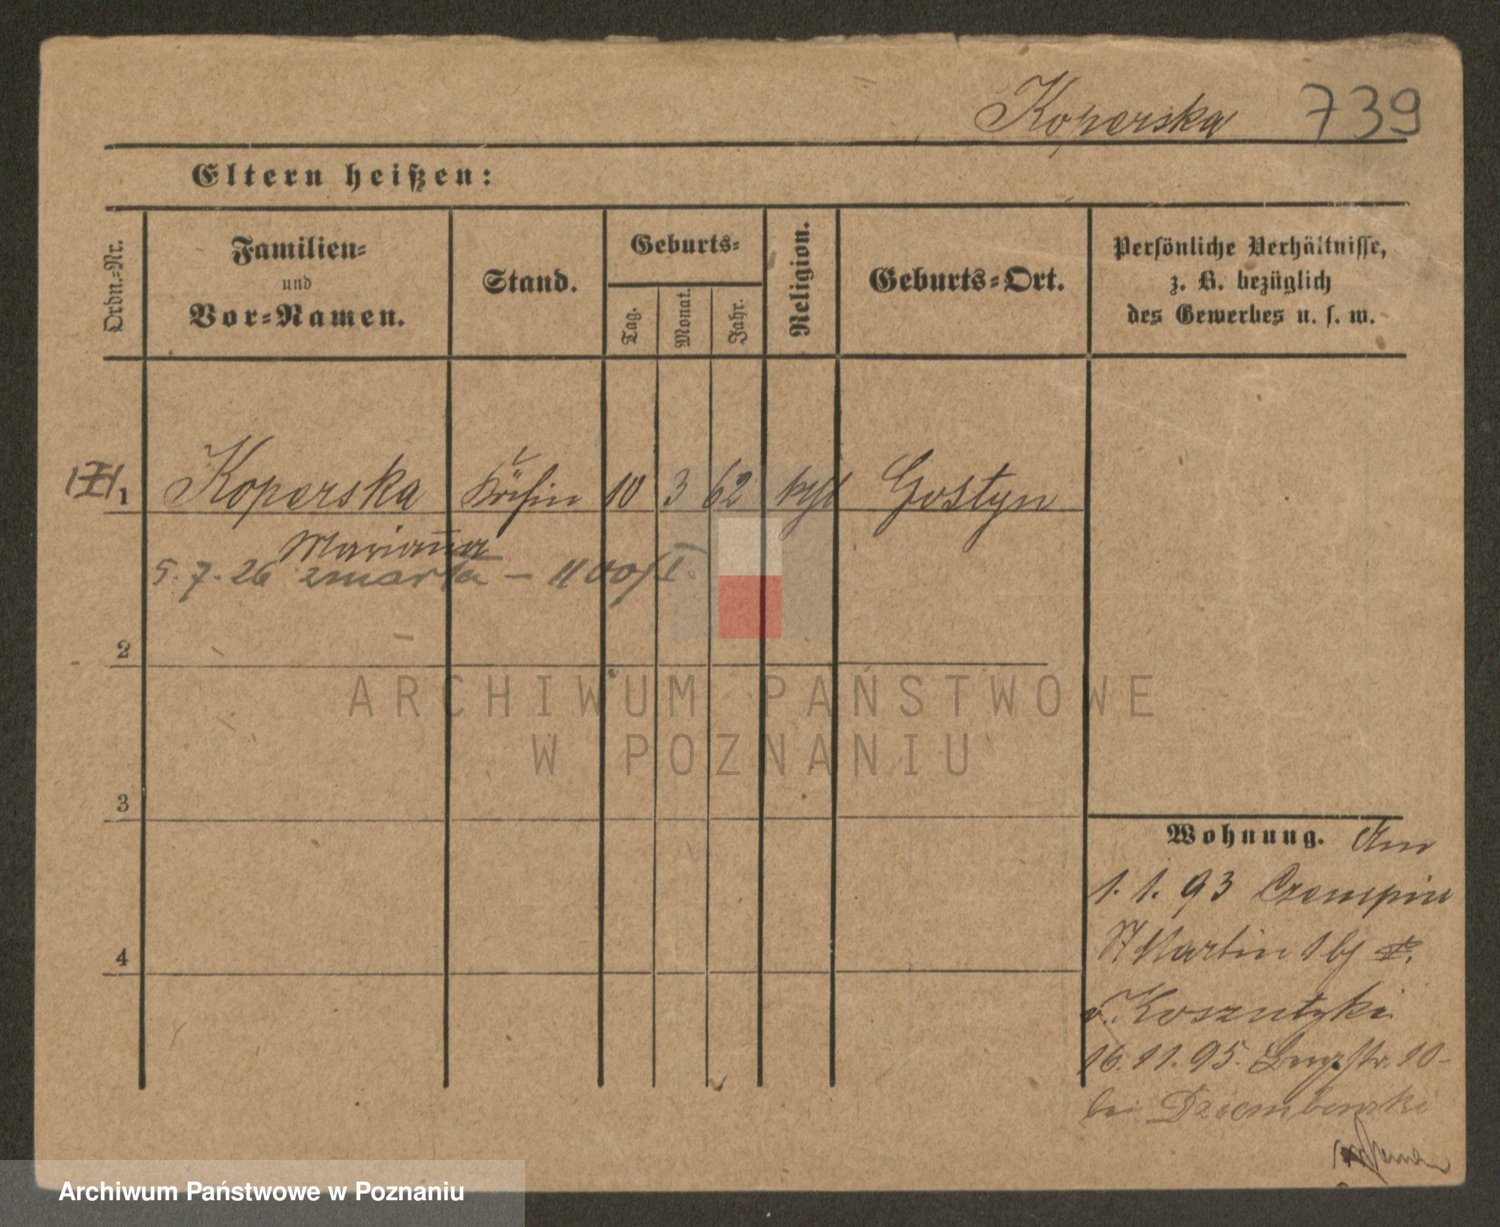 Koperska 739
Eltern heißen:
Ordn.-Nr.
Familien-
und
Vor-Namen.
Stand.
Geburts-
Tag.
Monat.
Jahr.
Religion.
Geburts-Ort.
Persönliche Verhältnisse,
z. B. bezüglich
des Gewerbes u. s. w.
1 Koperska Köchin 10 3 62 kath Gostyn
Marianna
5.7.26 zmarła – 1100/I.
2
3
4
Wohnung. Am
1.1.93 Czempin
St Martin
v. Koszutzki
16.11.95. 10
bei Dziembowski
ARCHIWUM PAŃSTWOWE
W POZNANIU
Archiwum Państwowe w Poznaniu